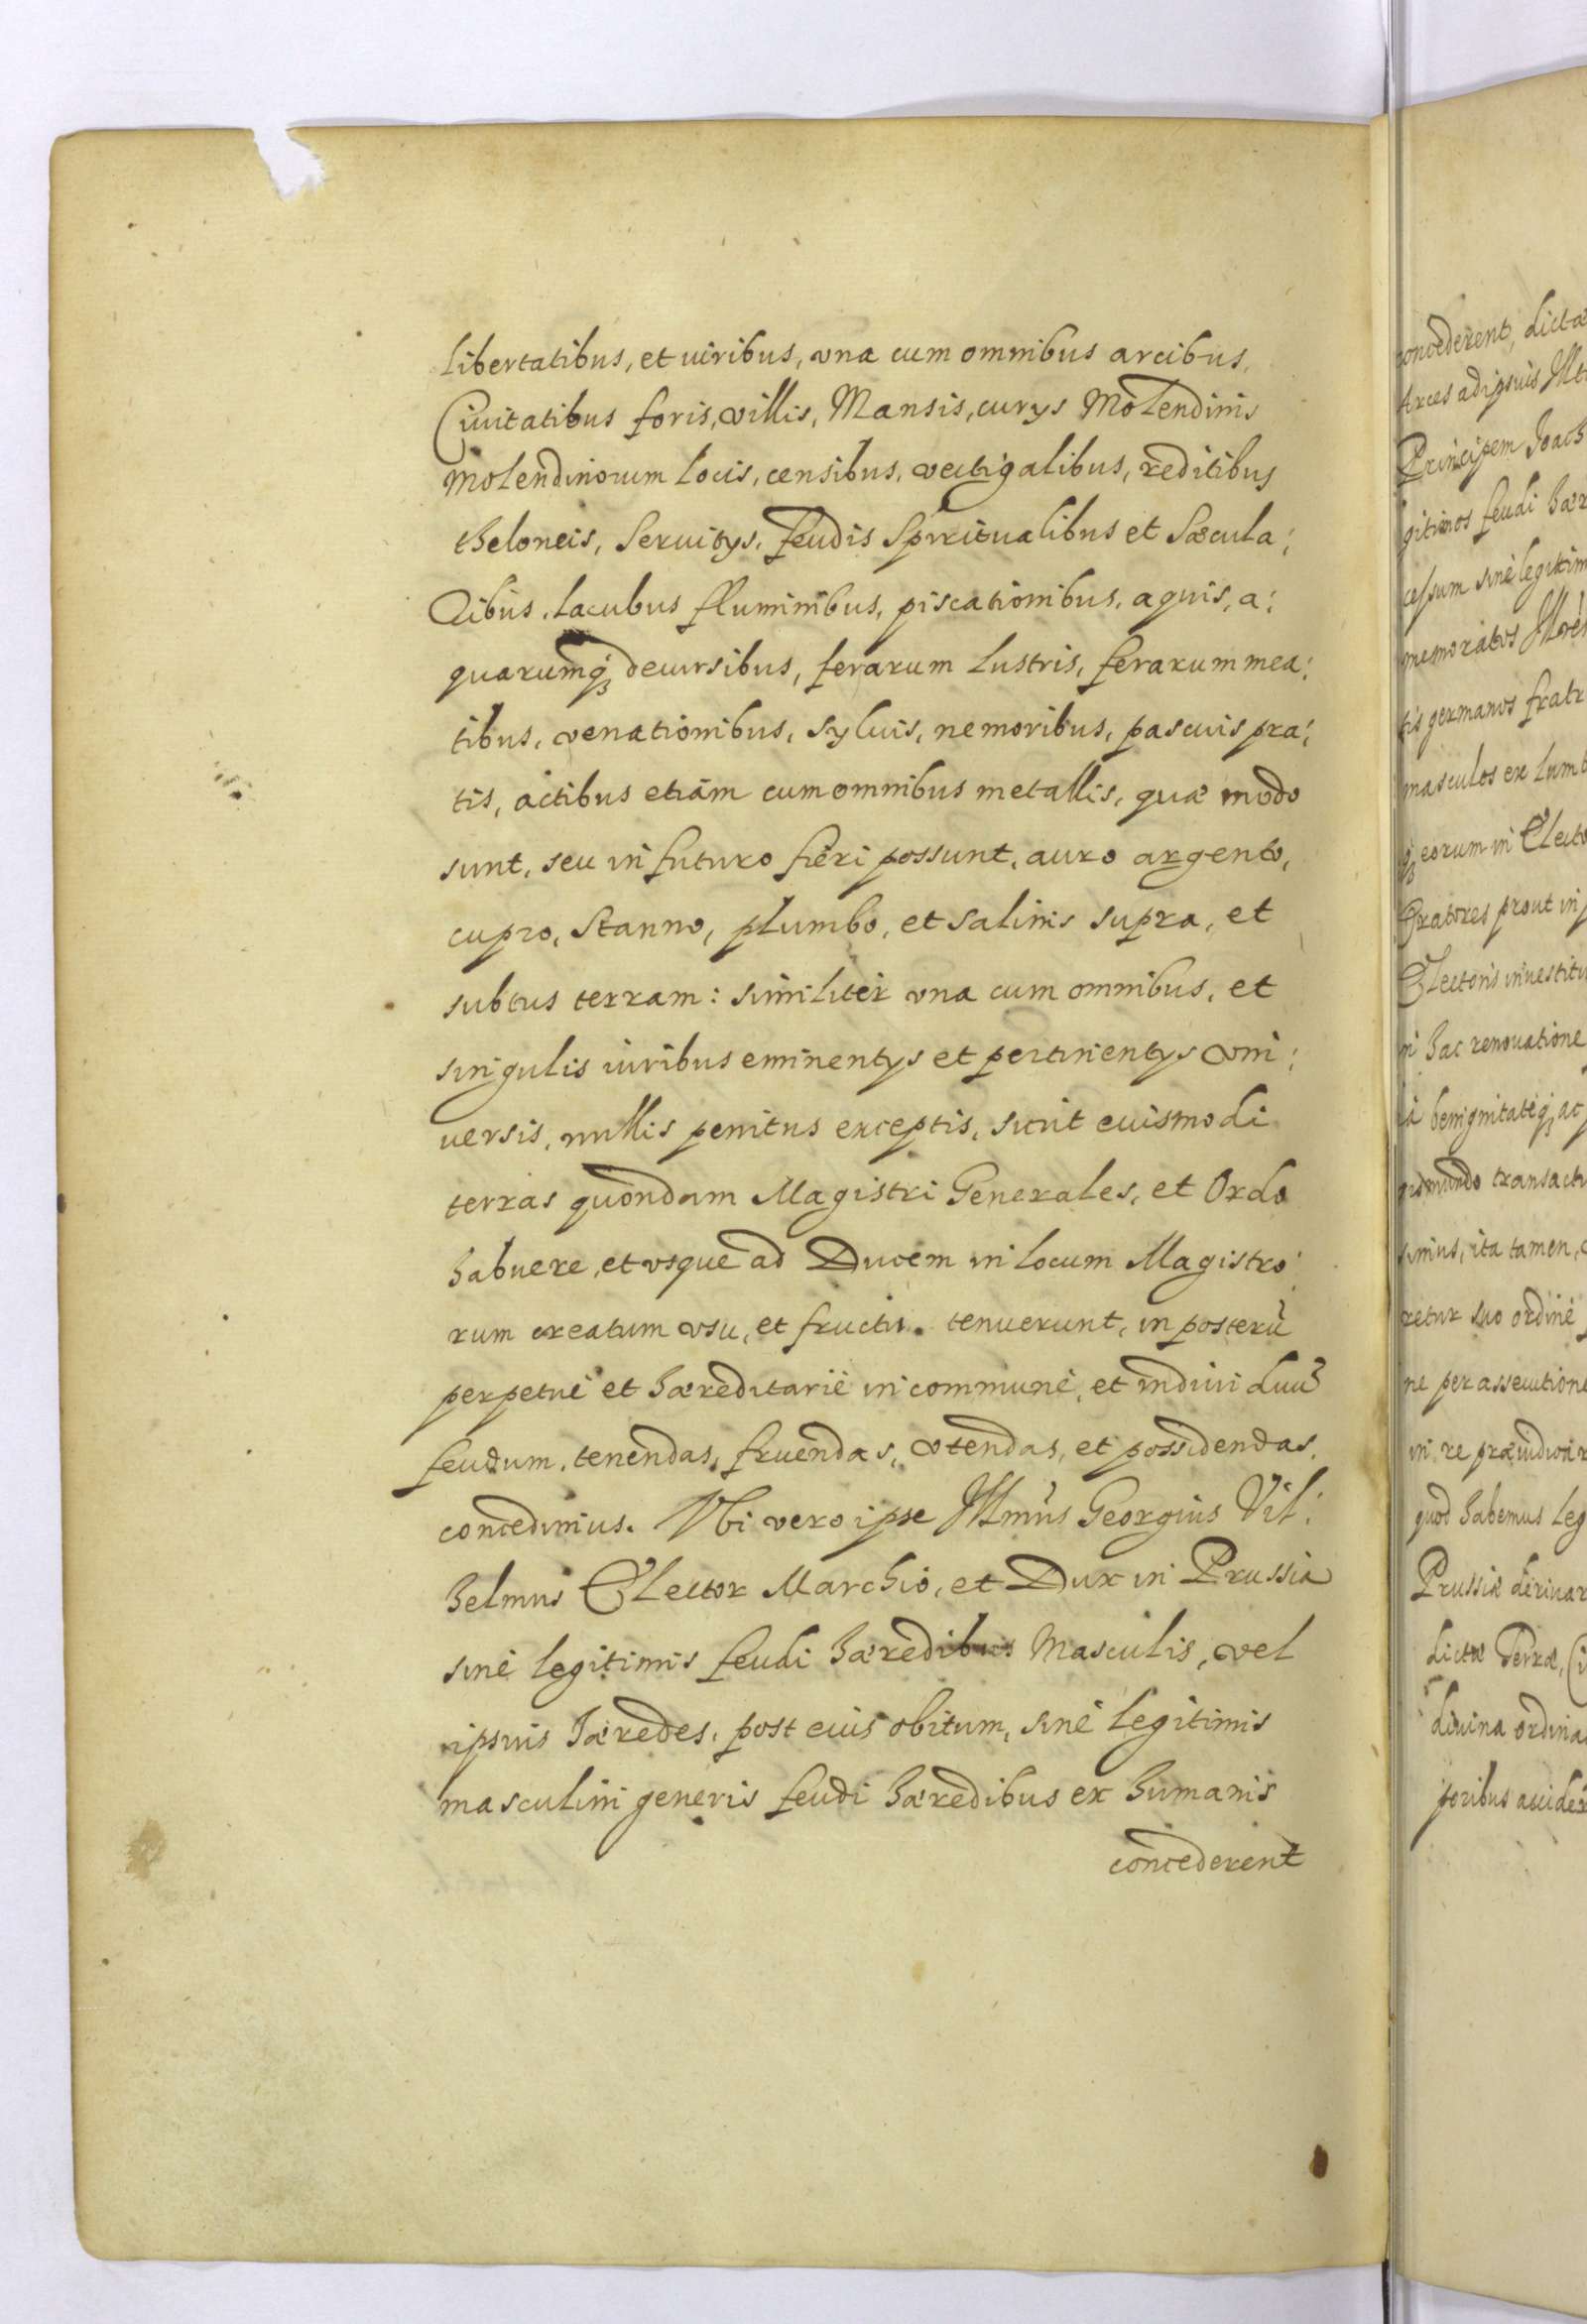 libertatibus, et iuribus, vna cum omnibus arcibus,
Ciuitatibus foris, villis, Mansis, curys Molendinis
molendinorum locis, censibus, vectigalibus, reditibus
theloneis, Seruitys, feudis Spiritualibus et Sæcula:
ribus, lacubus fluminibus, piscationibus, aquis, a:
quarumq; decursibus, ferarum lustris, ferarum mea:
tibus, venationibus, syluis, nemoribus, pascuis pra:
tis, actibus etiam cum omnibus metallis, quæ modo
sunt, seu in futuro fieri possunt, auro argento,
cupro, Stanno, plumbo, et salinis supra, et
subtus terram: similiter vna cum omnibus, et
singulis iuribus eminentys et pertinentys vni:
uersis, nullis penitus exceptis, sicut euismodi
terras quondam Magistri Generales, et Ordo
habuere, et vsque ad Ducem in locum Magistro:
rum creatum vsu, et fructu tenuerunt, in posterũ
perpetuè et hæreditariè in communè, et indiuiduũ
feudum, tenendas, fruendas, vtendas, et possidendas,
concedimus. Vbi vero ipse Illmus Georgius Vil:
helmus Elector Marchio, et Dux in Prussia
sinè legitimis feudi hæredibus Masculis, vel
ipsius hæredes, post eius obitum, sinè legitimis
masculini generis feudi hæredibus ex humanis
concederent
concederent, dictæ
Arces ad ipsius Ill
Principem Joach
gitimos feudi hær
cessum sinè legitim
memoratos
tis germanos fratr
masculos ex lumb
q; eorum in Electo
Oratores prout in
Electoris inuestitu
in hac renouatione
benignitateq; ac
transact
simus, ita tamen,
retur suo ordinè
ne per assecution
in re præiudicia
quod habemus leg
Prussiæ deriuar
dictæ Terræ, Ci
diuina ordina
poribus accider